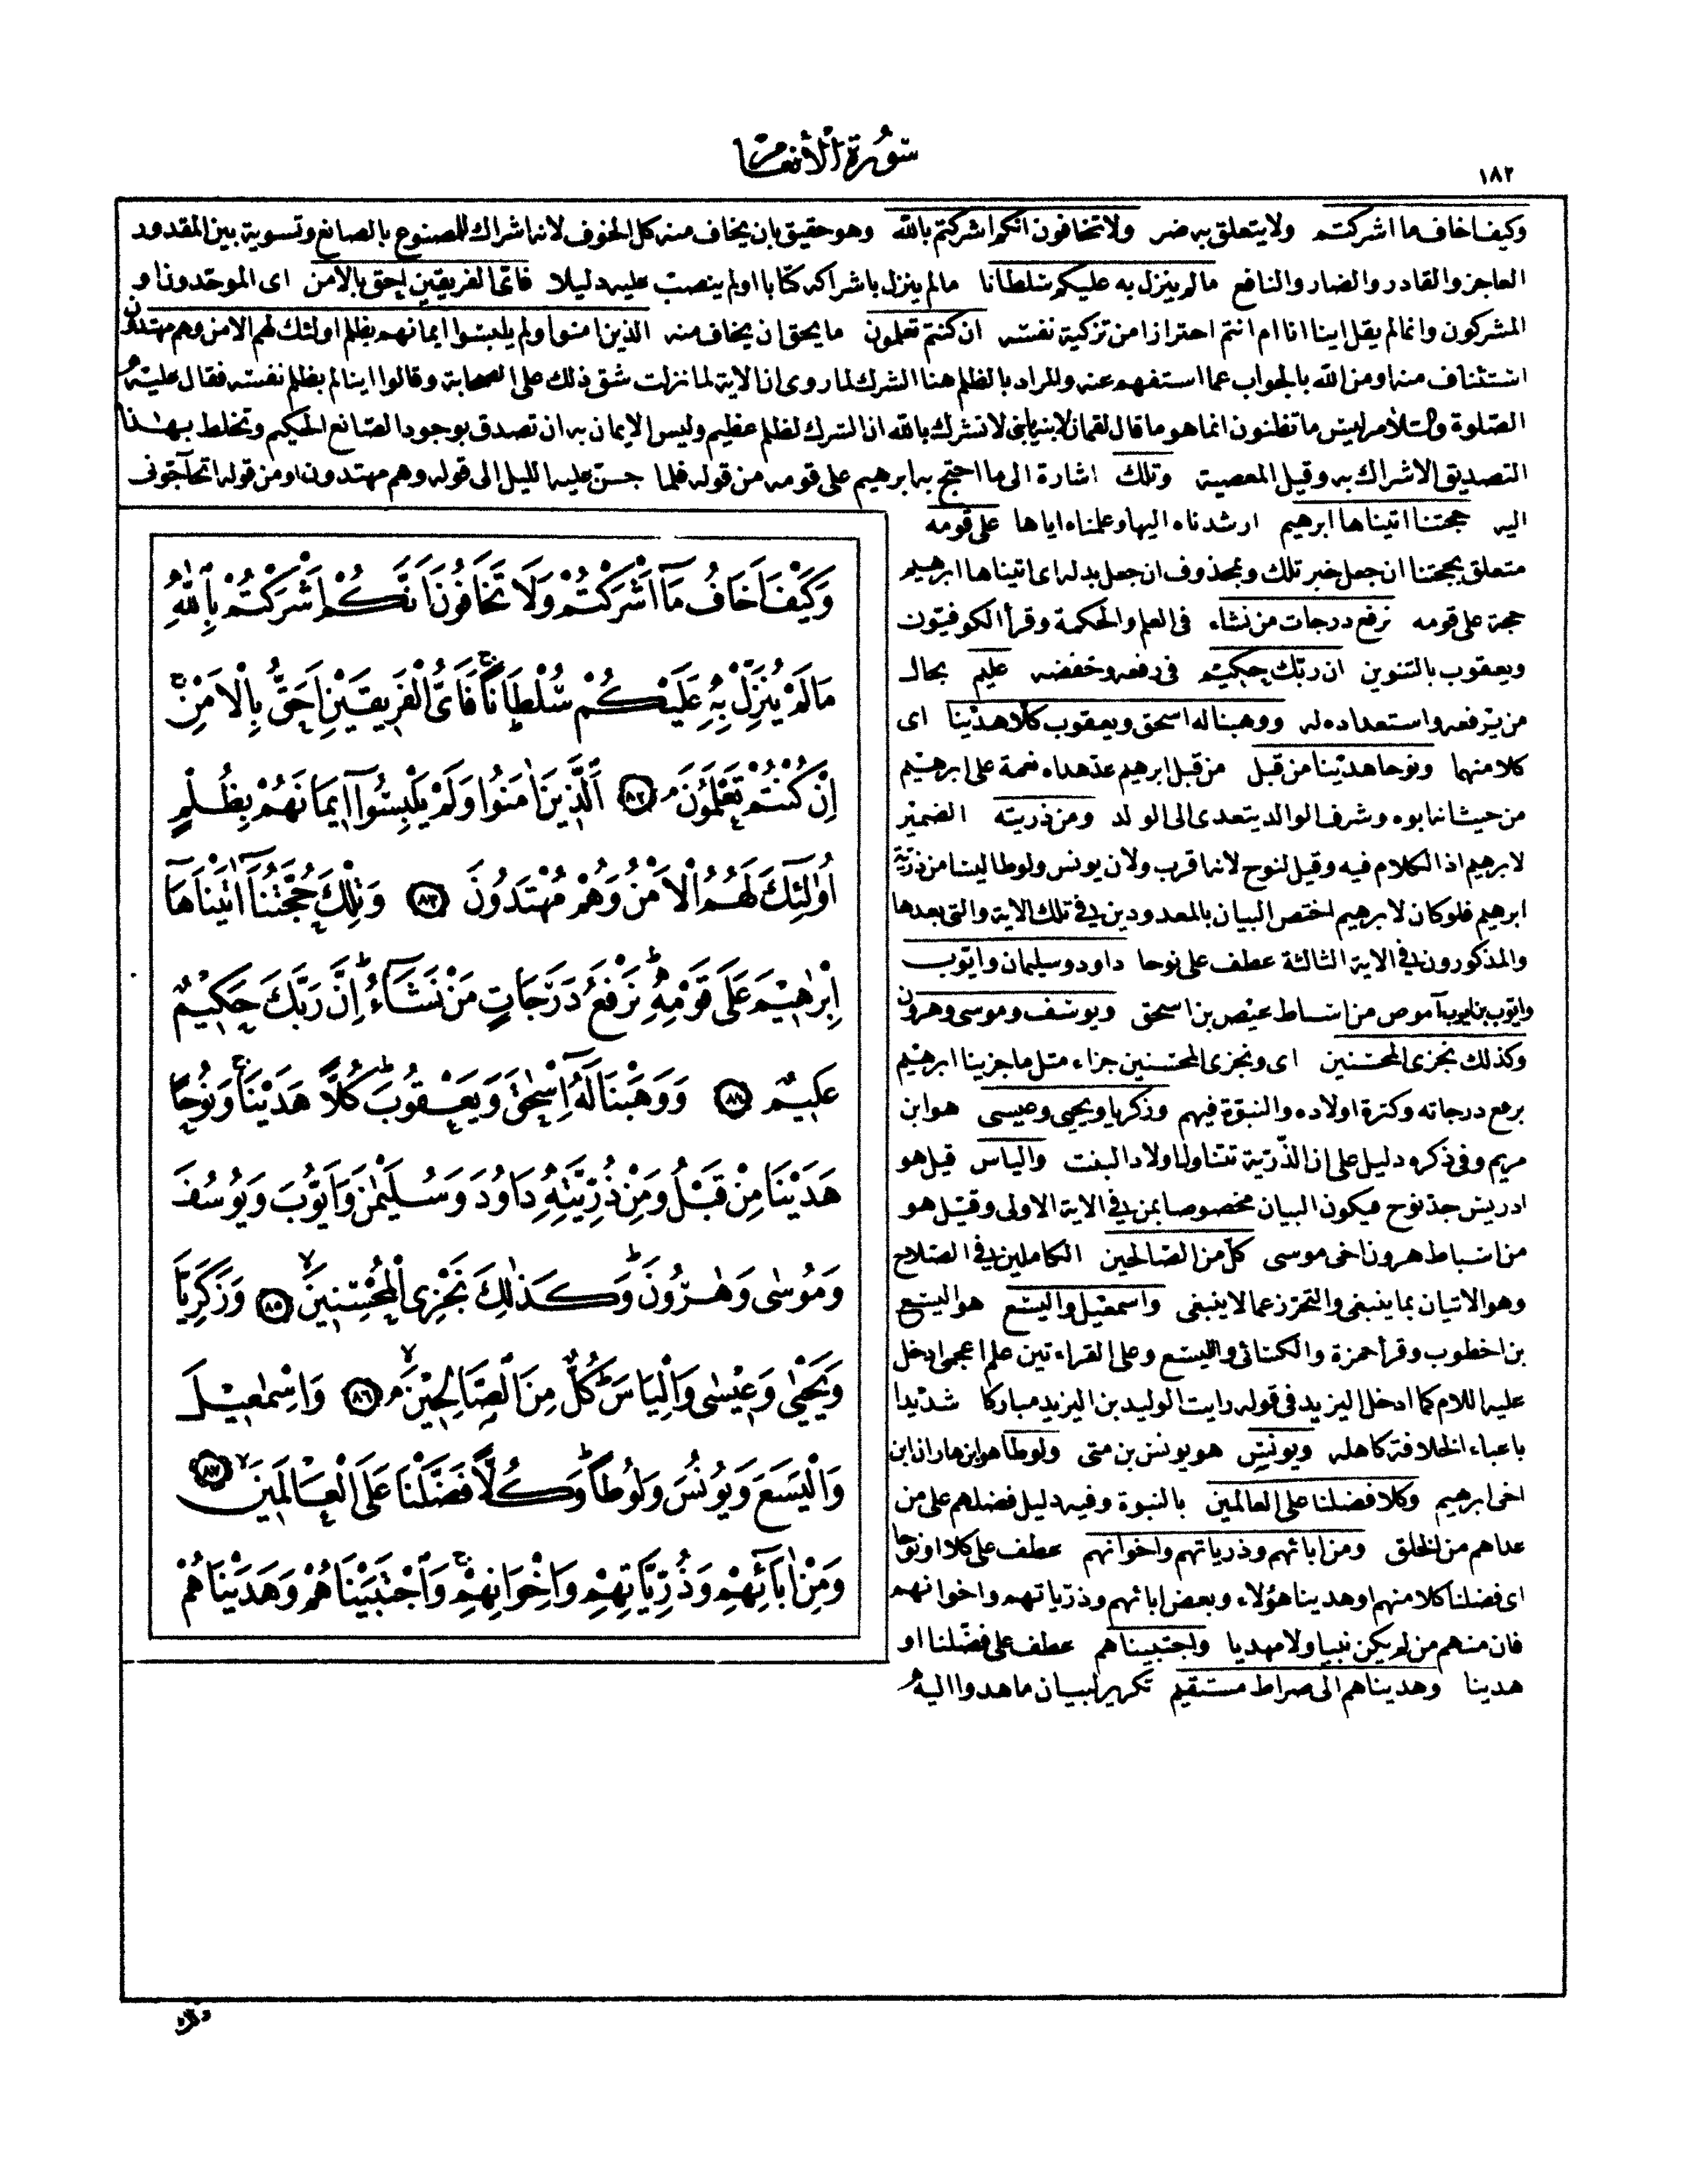 سورة الأنعام
١٨٢
وكيف اخاف ما اشركتم ولا يتعلق به ضر ولا تخافون انكم اشركتم بالله وهو حقيق بان يخاف منه كل الخوف لانه اشراك للصنوع بالصانع وتسوية بين المقدور
العاجز والقادر والضار والنافع ما لم ينزل به عليكم سلطانا ما لم ينزل باشراكه كتابا او لم ينصب عليه دليلا فاى الفريقين احق بالامن اى الموحدون او
المشركون وانما لم يقل اينا انا ام انتم احترازا من تزكية نفسه ان كنتم تعلمون ما يحق ان يخاف منه الذين امنوا ولم يلبسوا ايمانهم بظلم اولئك لهم الامن وهم مهتدون
استئناف منه او من الله بالجواب عما استفهم عنه والمراد بالظلم هنا الشرك لما روى ان الاية لما نزلت شق ذلك على الصحابة وقالوا اينا لم يظلم نفسه فقال عليه
الصلوة والسلام ليس ما تظنون انما هو ما قال لقمان لابنه يابنى لا تشرك بالله ان الشرك لظلم عظيم وليس الايمان به ان تصدق بوجود الصانع الحكيم وتخلط بهذا
التصديق الاشراك به وقيل المعصية وتلك اشارة الى ما احتج به ابرهيم على قومه من قوله فلما جن عليه الليل الى قوله وهم مهتدون او من قوله اتحآجونى
اليه حجتنا اتيناها ابرهيم ارشدناه اليها وعلمناه اياها على قومه
متعلق بحجتنا ان جعل خبر تلك وبمحذوف ان جعل بدله اى اتيناها ابرهيم
حجة على قومه نرفع درجات من نشاء فى العلم والحكمة وقرأ الكوفيون
ويعقوب بالتنوين ان ربك حكيم فى رفعه وخفضه عليم بحال
من يرفعه واستعداده له ووهبنا له اسحق ويعقوب كلا هدينا اى
كلا منهما ونوحا هدينا من قبل من قبل ابرهيم عد هداه نعمة على ابرهيم
من حيث انه ابوه وشرف الوالد يتعدى الى الولد ومن ذريته الضمير
لابرهيم اذ الكلام فيه وقيل لنوح لانه اقرب ولان يونس ولوطا ليسا من ذرية
ابرهيم فلو كان لابرهيم اختص البيان بالمعدودين فى تلك الاية والتى بعدها
والمذكورون فى الاية الثالثة عطف على نوحا داود وسليمان وايوب
وايوب بن آموص من اسباط عيص بن اسحق ويوسف وموسى وهرون
وكذلك نجزى المحسنين اى ونجزى المحسنين جزاء مثل ما جزينا ابرهيم
برفع درجاته وكثرة اولاده والنبوة فيهم وزكريا ويحيى وعيسى هو ابن
مريم وفى ذكره دليل على ان الذرية تتناول اولاد البنت والياس قيل هو
ادريس جد نوح فيكون البيان مخصوصا بمن فى الاية الاولى وقيل هو
من اسباط هرون اخى موسى كل من الصالحين الكاملين فى الصلاح
وهو الاتيان بما ينبغى والتحرز عما لا ينبغى واسمعيل واليسع هو اليسع
بن اخطوب وقرأ حمزة والكسائى والليسع وعلى القراءتين علم اعجمى ادخل
عليه اللام كما ادخل اليزيد فى قوله رايت الوليد بن اليزيد مباركا شديدا
باعباء الخلافة كاهله ويونس هو يونس بن متى ولوطا هو ابن هاران ابن
اخى ابرهيم وكلا فضلنا على العالمين بالنبوة وفيه دليل فضلهم على من
عداهم من الخلق ومن ابائهم وذرياتهم واخوانهم عطف على كلا او نوحا
اى فضلنا كلا منهم او هدينا هؤلاء وبعض ابائهم وذرياتهم واخوانهم
فان منهم من لم يكن نبيا ولا مهديا واجتبيناهم عطف على فضلنا او
هدينا وهديناهم الى صراط مستقيم تكرير لبيان ما هدوا اليه
وَكَيْفَ اَخَافُ مَآ اَشْرَكْتُمْ وَلَا تَخَافُونَ اَنَّكُمْ اَشْرَكْتُمْ بِاللّٰهِ
مَا لَمْ يُنَزِّلْ بِهِ عَلَيْكُمْ سُلْطَانًا فَاَىُّ الْفَرِيقَيْنِ اَحَقُّ بِالْاَمْنِ
اِنْ كُنْتُمْ تَعْلَمُونَ ﴿٨٢﴾ اَلَّذِينَ اٰمَنُوا وَلَمْ يَلْبِسُوٓا ايمَانَهُمْ بِظُلْمٍ
اُولٰٓئِكَ لَهُمُ الْاَمْنُ وَهُمْ مُهْتَدُونَ ﴿٨٣﴾ وَتِلْكَ حُجَّتُنَآ اٰتَيْنَاهَآ
اِبْرٰهِيمَ عَلٰى قَوْمِهِ نَرْفَعُ دَرَجَاتٍ مَنْ نَشَآءُ اِنَّ رَبَّكَ حَكِيمٌ
عَلِيمٌ ﴿٨٤﴾ وَوَهَبْنَا لَهُٓ اِسْحٰقَ وَيَعْقُوبَ كُلًّا هَدَيْنَا وَنُوحًا
هَدَيْنَا مِنْ قَبْلُ وَمِنْ ذُرِّيَّتِهِ دَاوُدَ وَسُلَيْمٰنَ وَاَيُّوبَ وَيُوسُفَ
وَمُوسٰى وَهٰرُونَ وَكَذٰلِكَ نَجْزِى الْمُحْسِنِينَ ﴿٨٥﴾ وَزَكَرِيَّا
وَيَحْيٰى وَعِيسٰى وَاِلْيَاسَ كُلٌّ مِنَ الصَّالِحِينَ ﴿٨٦﴾ وَاِسْمٰعِيلَ
وَالْيَسَعَ وَيُونُسَ وَلُوطًا وَكُلًّا فَضَّلْنَا عَلَى الْعَالَمِينَ ﴿٨٧﴾
وَمِنْ اٰبَآئِهِمْ وَذُرِّيَّاتِهِمْ وَاِخْوَانِهِمْ وَاجْتَبَيْنَاهُمْ وَهَدَيْنَاهُمْ